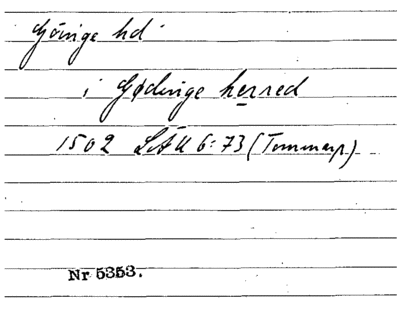 Göinge hd
i Gødinge herred
1502 LÄU 6:73 (Tommarp.)
Nr 5353.